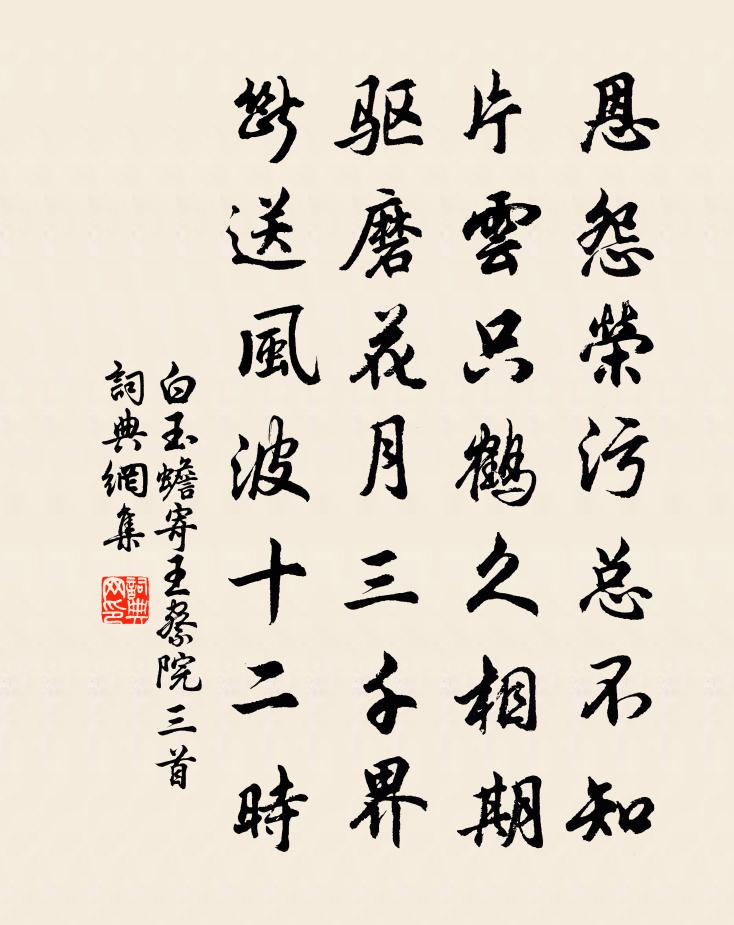 恩怨榮污总不知
片雲只鶴久相期
驱磨花月三千界
斷送風波十二時
白玉蟾寄王察院三首
詞典網集
詞典網印